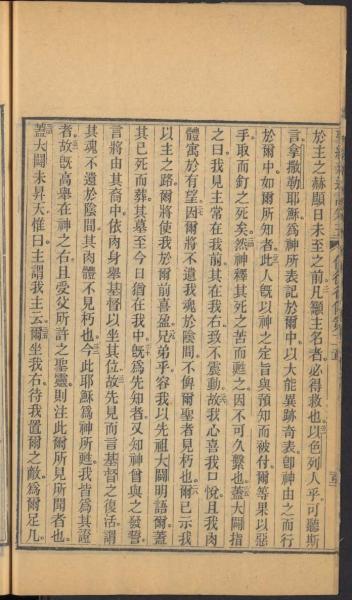 於主之赫顯日未至之前凡籲主名者必得救也以色列人乎可聽斯
言拿撒勒耶穌爲神所表記於爾中以大能異跡奇表卽神由之而行
於爾中如爾所知者此人旣以神之定旨與預知而被付爾等果以惡
手取而釘之死矣然神釋其死之苦而甦之因不可久繫也蓋大闢指
之曰我見主常在我前其在我右致不震動故我心喜我口悅且我肉
體寓於有望因爾將不遺我魂於陰間不俾爾聖者見朽也爾已示我
以生之路爾將使我於爾前喜盈兄弟乎容我以先祖大闢明語爾蓋
其已死而葬其墓至今日猶在我中旣爲先知者又知神曾與之發誓
言將由其裔中依肉身舉基督以坐其位故先見而言基督之復活謂
其魂不遺於陰間其肉體不見朽也今此耶穌爲神所甦我皆爲其證
者故旣高舉在神之右且受父所許之聖靈則注此爾所見所聞者也
蓋大闢未昇天惟曰主謂我主云爾坐我右待我置爾之敵爲爾足几